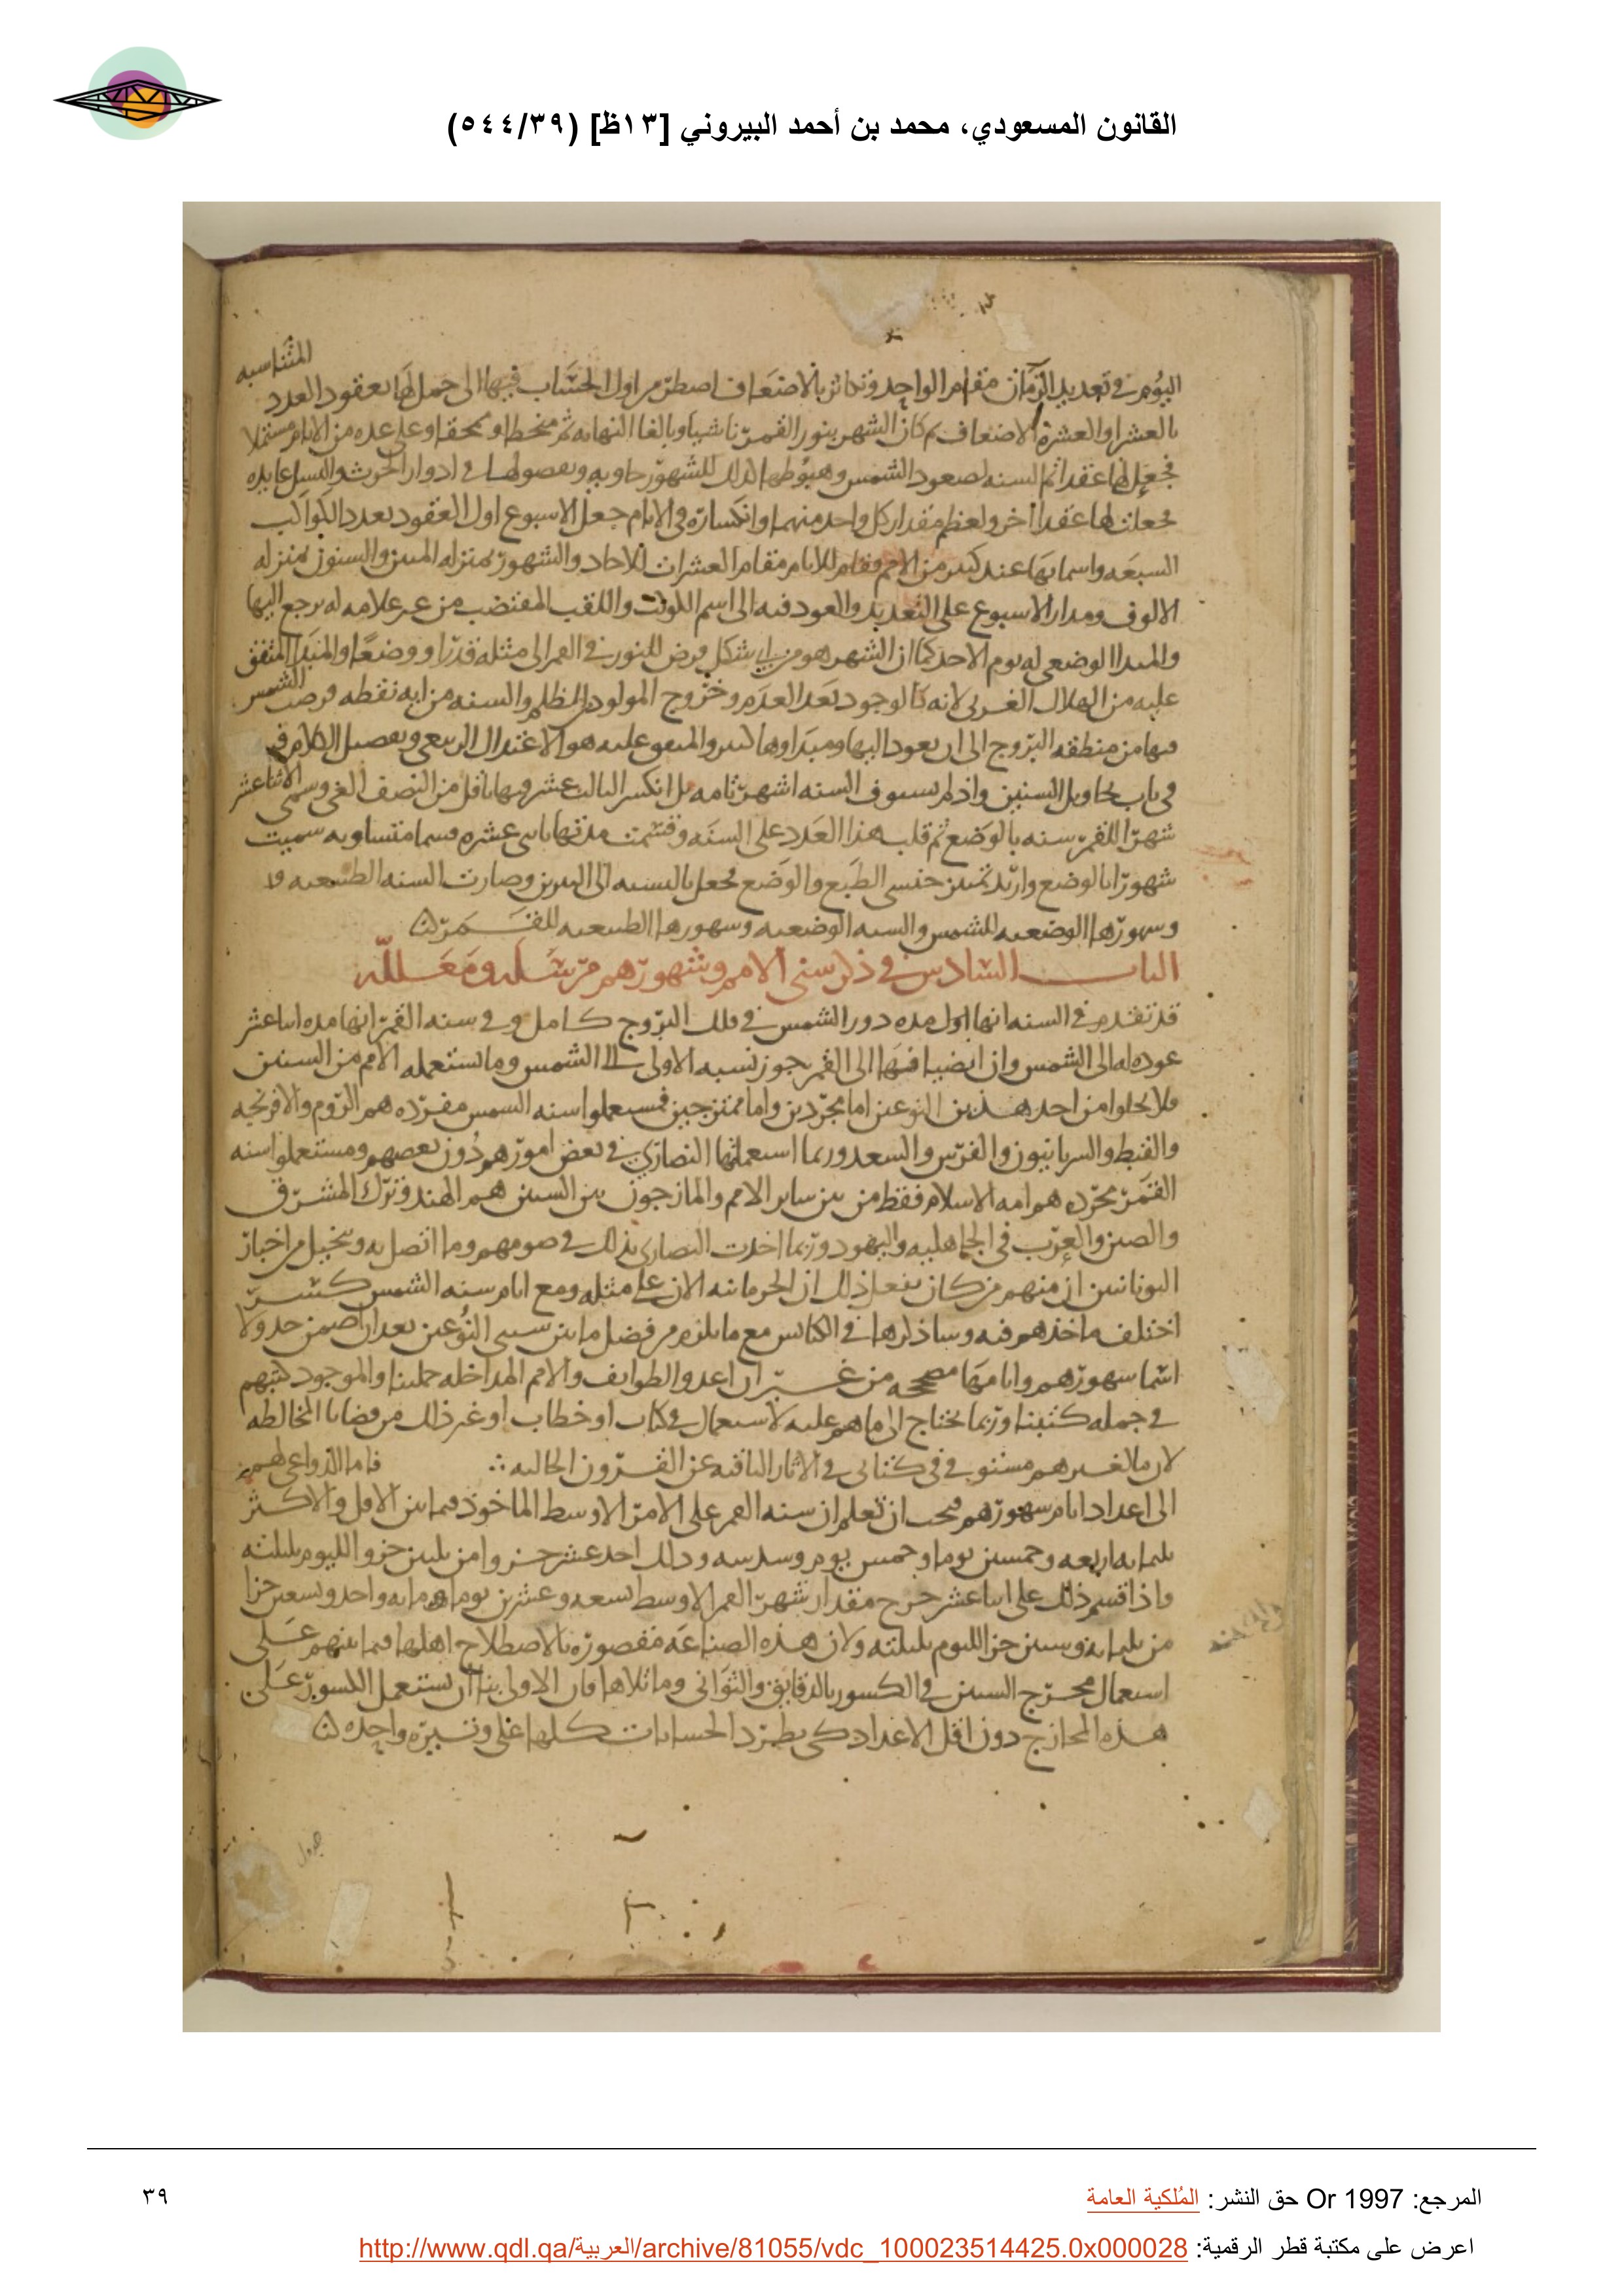 القانون المسعودي، محمد بن أحمد البيروني [١٣ظ] (٥٤٤/٣٩)
المتناسبه
اليوم في تعديد الزمان مقام الواحد وتكاثر بالاضعاف اضطر من اول الحساب فيها الى حمل لها بعقود العدد
بالعشر او العشرة الاضعاف ثم كان الشهر بنور القمر ناشيا وبالغا النهايه ثم منخطا وممحقا وعلى عده من الايام مشتملا
فجعل لها عقدا ثم السنه لصعود الشمس وهبوطها لذلك للشهور حاويه وبفصولها في ادوار الحرث والنسل عايده
فجعلت لها عقدا اخر ولعظم مقدار كل واحد منهما وانكساره في الايام جعل الاسبوع اول العقود بعدد الكواكب
السبعه واسمايها عند كثير من الامم فقام للايام مقام العشرات للاحاد والشهور بمنزله المئين والسنون بمنزله
الالوف ومدار الاسبوع على التعديد والعود فيه الى اسم اللوت واللقب المقتضب من غير علامه له يرجع اليها
والمبدا الوضعي له يوم الاحد كما ان الشهر هو من اي شكل فرض للنور في القمر الى مثله قدرا ووضعا والمبدا المتفق
عليه من الهلال الغربي لانه كالوجود بعد العدم وخروج المولود من الظلم والسنه من ايه نقطه فرصت الشمس
فيها من منطقه البروج الى ان يعود اليها ومبداوها كثير والمتفق عليه هو الاعتدال الربيعي وتفصيل الكلام فيه
في باب تحاويل السنين واذ لم يستوف السنه اشهر تامه بل انكسر الثالث عشر فيها باقل من النصف الغي وسمى الاثنا عشر
شهرا للقمر سنه بالوضع ثم قلب هذا العدد على السنه وقسمت مدتها باثنى عشره قسما متساويه سميت
شهورا بالوضع واريد تميز جنسي الطبع والوضع فجعل بالنسبه الى النيرين وصارت السنه الطبيعيه
وشهورها الوضعيه للشمس والسنه الوضعيه وشهورها الطبيعيه للقمر
الباب السادس في ذكر سني الامم وشهورهم مرسله ومعلله
قد تقدم في السنه انها اول مده دور الشمس في فلك البروج كامل وفي سنه القمر انها مده اثنا عشر
عوده له الى الشمس وان انضيافها الى القمر بجوز نسبه الاولى الى الشمس وما تستعمله الامم من السنين
فلا يخلوا من احد هذين النوعين اما مجردين واما ممتزجين فمستعملوا سنه الشمس مفرده هم الروم والافرنجه
والقبط والسريانيون والفرس والسغد وربما استعملتها النصارى في بعض امورهم دون بعضهم ومستعملوا سنه
القمر مجرده هم امه الاسلام فقط من بين ساير الامم والمازجون بين السنين هم الهند وترك المشرق
والصين والعرب في الجاهليه واليهود وربما اخذت النصارى بذلك في صومهم وما اتصل به ويتخيل من اخبار
اليونانيين ان منهم من كان يفعل ذلك لان الحرمانيه الان على مثله ومع ايام سنه الشمس كسر
اختلف ماخذهم فيه وساذكرها في الكبايس مع ما يلزم من فضل ما بين سني النوعين بعد ان اضمن جدولا
اسما شهورهم وايامها مصححه من غير ان اعدو الطوايف والامم المداخله جملتنا والموجود كتبهم
في جمله كتبنا وربما يحتاج الى ما هم عليه لاستعمال في كتاب او خطاب او غير ذلك من قضايا المخالطه
لان ما لغيرهم مستوفي في كتابي في الاثار الباقيه عن القرون الخاليه ∴ فاما الدواعي لهم
الى اعداد ايام شهورهم فيجب ان تعلم ان سنه القمر على الامر الاوسط الماخوذ فيما بين الاقل والاكثر
ثلثمايه اربعه وخمسين يوما وخمس يوم وسدسه وذلك احد عشر جزوا من ثلثين جزوا لليوم بليلته
واذا قسم ذلك على اثنا عشر خرج مقدار شهر القمر الاوسط تسعه وعشرين يوما ومايه واحد وتسعين جزا
من ثلثمايه وستين جزا لليوم بليلته ولان هذه الصناعه مقصوره بالاصطلاح اهلها فيما بينهم على
استعمال مخرج الستين في الكسور بالدقايق والثواني وما تلاها فان الاولى بنا ان نستعمل الكسور على
هذه المخارج دون اقل الاعداد كي يطرد الحسابات كلها على وتيره واحده
جدول
المرجع: Or 1997 حق النشر: المُلكية العامة
٣٩
اعرض على مكتبة قطر الرقمية: http://www.qdl.qa/العربية/archive/81055/vdc_100023514425.0x000028